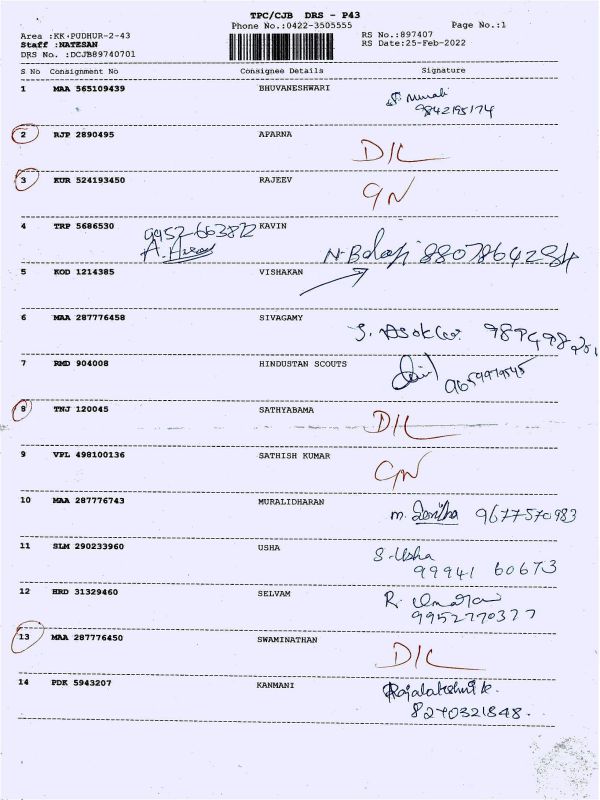 TPC/CJB DRS - P43
Phone No.:0422-3505555
Page No.:1
Area :KK-PUDHUR-2-43
Staff :NATESAN
DRS No. :DCJB89740701
RS No.:897407
RS Date:25-Feb-2022
S No Consignment No Consignee Details Signature
1 MAA 565109439 BHUVANESHWARI
9842195174
2 RJP 2890495 APARNA D/L
3 KUR 524193450 RAJEEV GN
4 TRP 5686530 KAVIN
N. Balaji 8807864284
5 KOD 1214385 VISHAKAN
6 MAA 287776458 SIVAGAMY
7 RMD 904008 HINDUSTAN SCOUTS
9659919545
8 TNJ 120045 SATHYABAMA D/L
9 VPL 498100136 SATHISH KUMAR GN
10 MAA 287776743 MURALIDHARAN
9677570983
11 SLM 290233960 USHA S. Usha
99941 60673
12 HRD 31329460 SELVAM
9952770377
13 MAA 287776450 SWAMINATHAN D/L
14 PDK 5943207 KANMANI Rajalakshmi k.
8270321848.